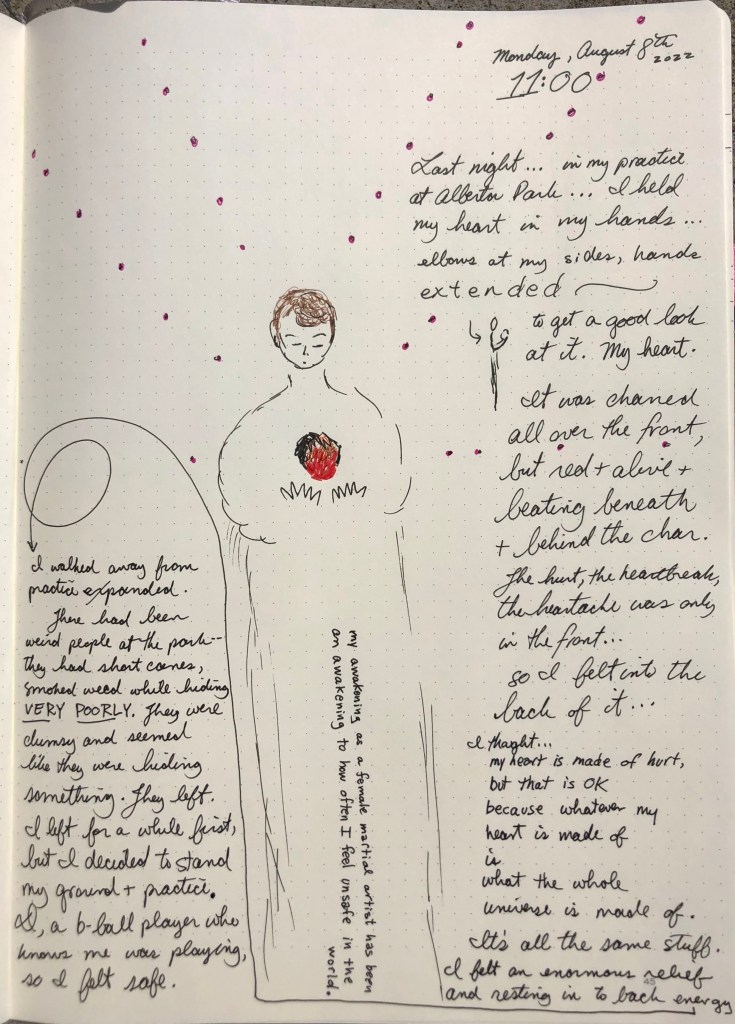 Monday, August 8th
2022
11:00
Last night... in my practice
at Park... I held
my heart in my hands...
elbows at my sides, hands
extended
to get a good look
at it. My heart.
It was charred
all over the front,
but red + alive +
beating beneath
+ behind the char.
The hurt, the heartbreak,
the heartache was only
in the front...
so I felt into the
back of it...
I thought...
my heart is made of hurt,
but that is OK
because whatever my
heart is made of
is
what the whole
universe is made of.
It's all the same stuff.
I felt an enormous relief
45
and resting in to back energy
I walked away from
practice expanded.
There had been
weird people at the park--
they had short canes,
smoked weed while hiding
VERY POORLY. They were
clumsy and seemed
like they were hiding
something. They left.
I left for a while first,
but I decided to stand
my ground + practice.
D, a b-ball player who
knows me was playing,
so I felt safe.
my awakening as a female martial artist has been
an awakening to how often I feel unsafe in the
world.